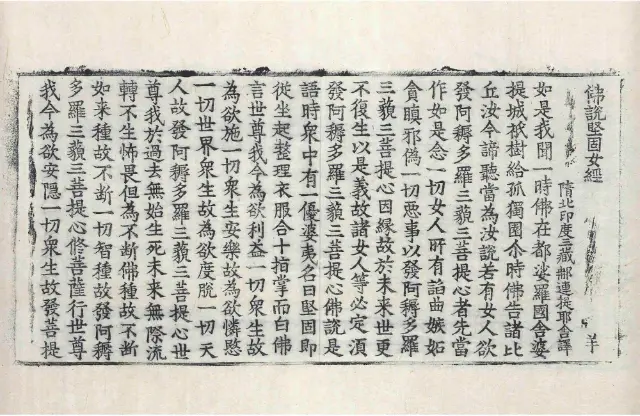 佛說堅固女經
羊
隋北印度三藏那連提耶舍譯
如是我聞一時佛在都娑羅國舍婆
提城祇樹給孤獨園尒時佛告諸比
丘汝今諦聽當為汝說若有女人欲
發阿耨多羅三藐三菩提心者先當
作如是念一切女人所有諂曲嫉妬
貪瞋邪偽一切惡事以發阿耨多羅
三藐三菩提心因緣故於未來世更
不復生以是義故諸女人等必定須
發阿耨多羅三藐三菩提心佛說是
語時衆中有一優婆夷名曰堅固即
從坐起整理衣服合十指掌而白佛
言世尊我今為欲利益一切衆生故
為欲施一切衆生安樂故為欲憐愍
一切世界衆生故為欲度脫一切天
人故發阿耨多羅三藐三菩提心世
尊我於過去無始生死未來無際流
轉不生怖畏但為不斷佛種故不斷
如来種故不斷一切智種故發阿耨
多羅三藐三菩提心修菩薩行世尊
我今為欲安隱一切衆生故發菩提